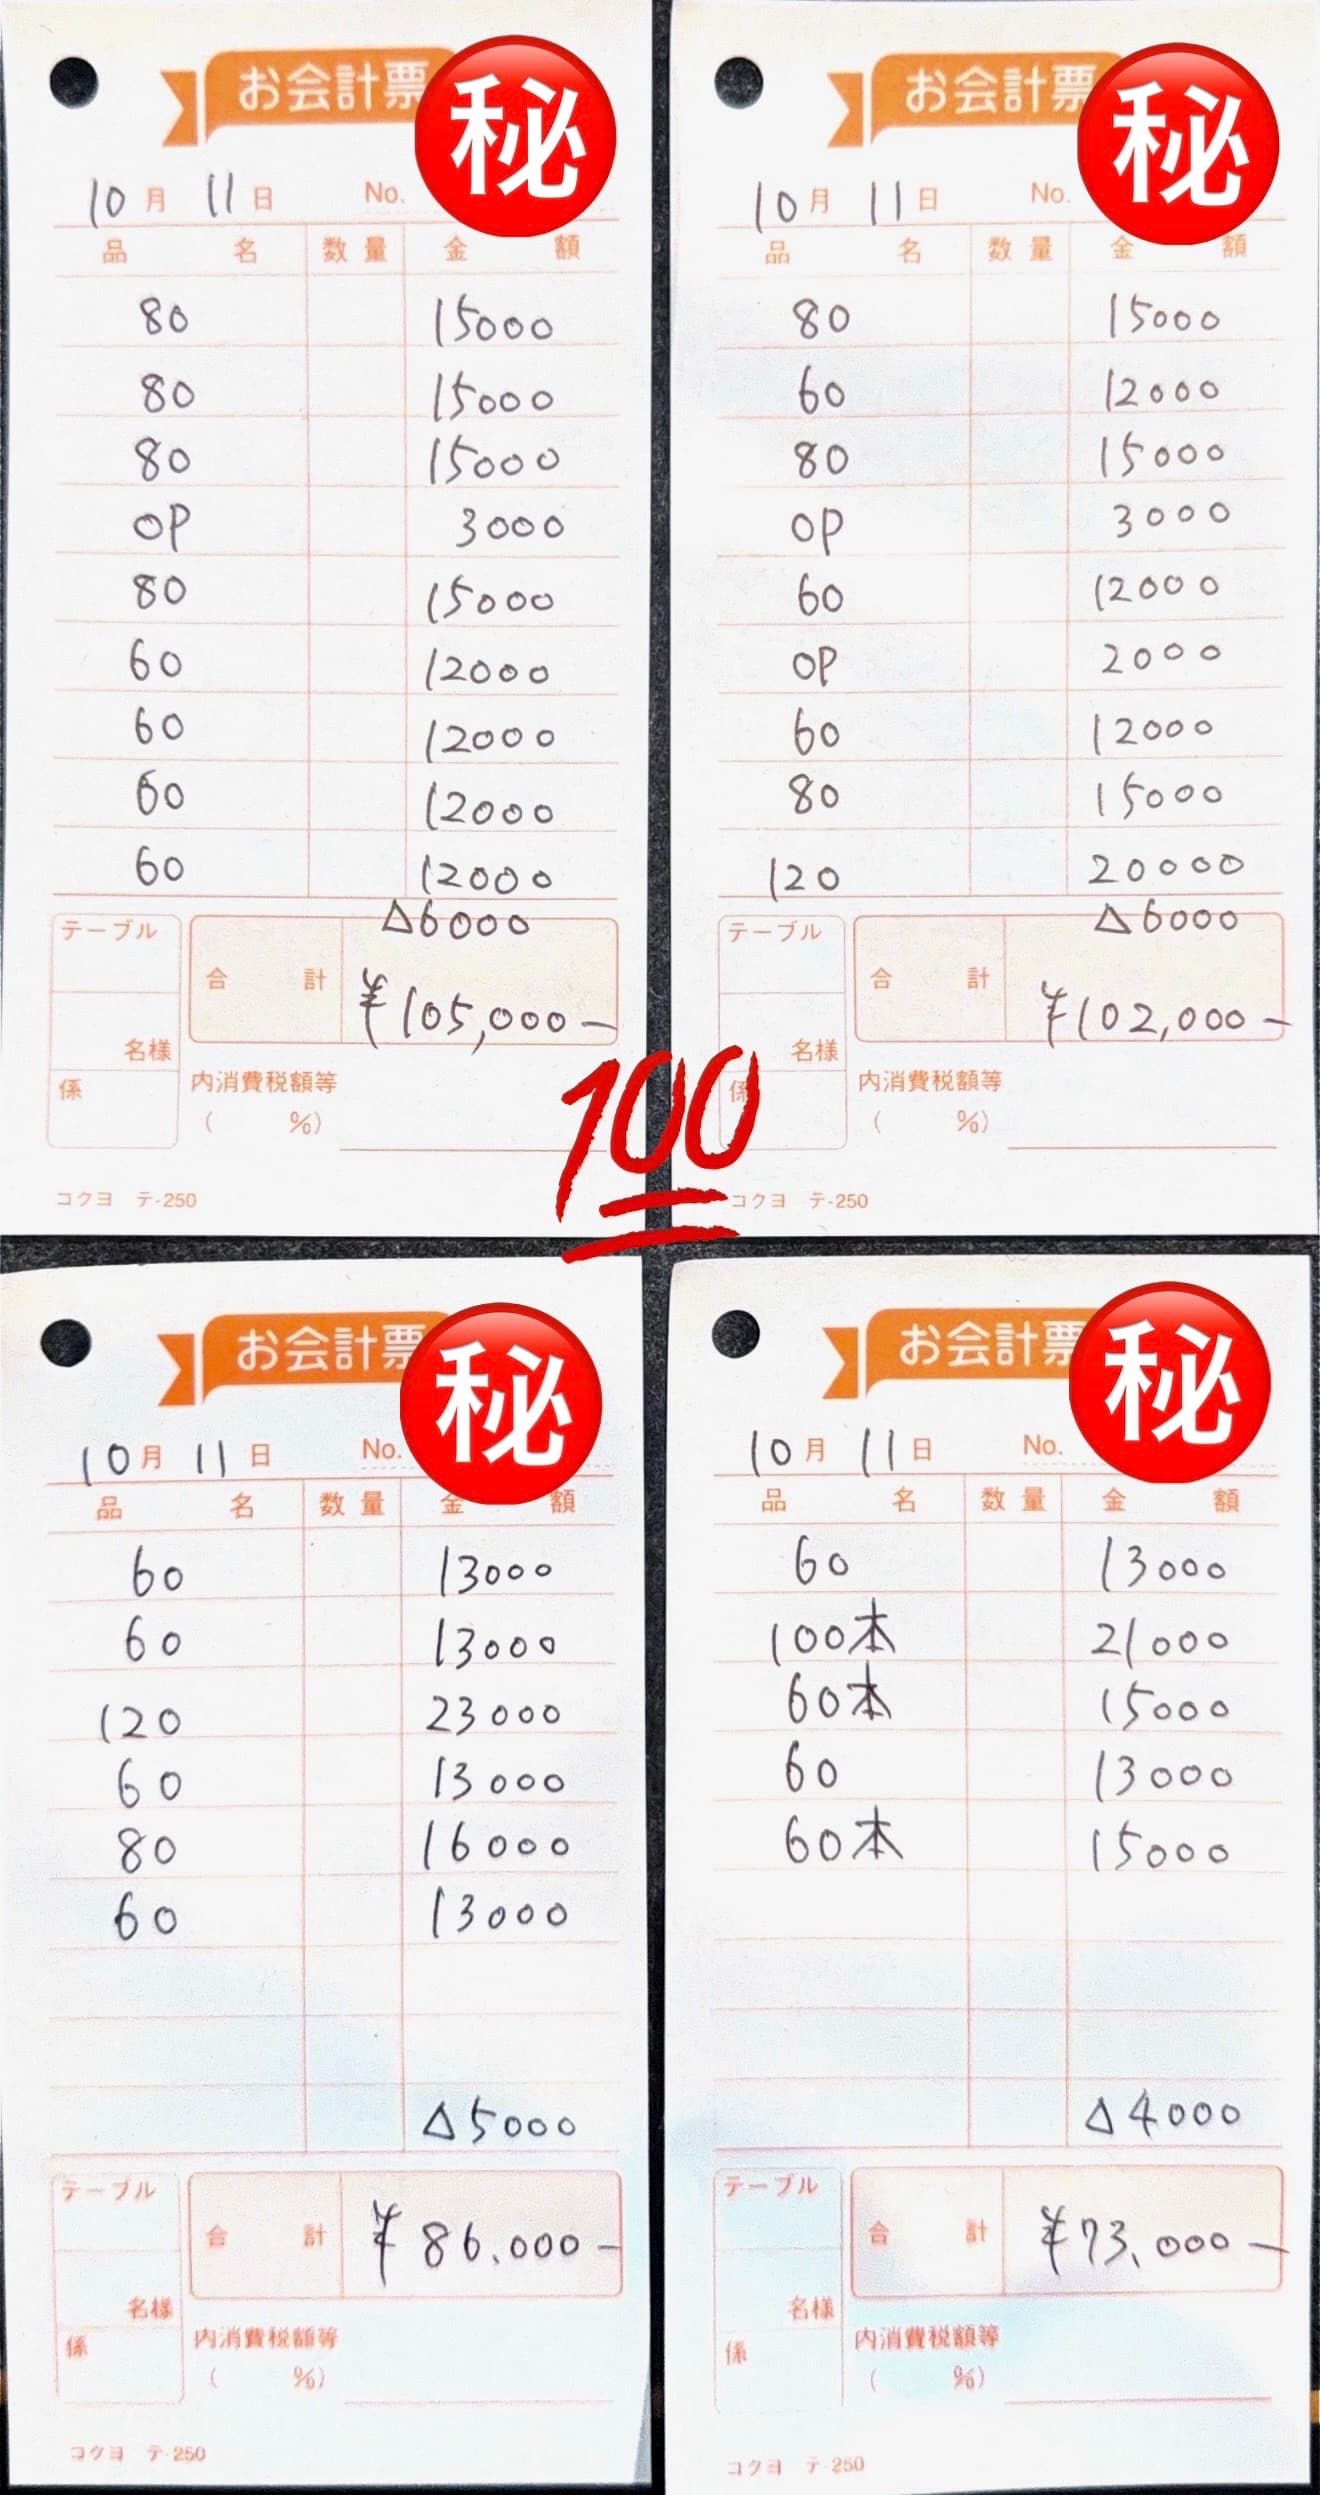 お会計票
㊙
10月 11日 No.
品名 数量 金額
80 15000
80 15000
80 15000
OP 3000
80 15000
60 12000
60 12000
60 12000
60 12000
△6000
テーブル
合計 ¥105,000-
名様
係
内消費税額等
( %)
コクヨ テ-250
お会計票
㊙
10月 11日 No.
品名 数量 金額
80 15000
60 12000
80 15000
OP 3000
60 12000
OP 2000
60 12000
80 15000
120 20000
△6000
テーブル
合計 ¥102,000-
名様
係
内消費税額等
( %)
コクヨ テ-250
100
お会計票
㊙
10月 11日 No.
品名 数量 金額
60 13000
60 13000
120 23000
60 13000
80 16000
60 13000
△5000
テーブル
合計 ¥86,000-
名様
係
内消費税額等
( %)
コクヨ テ-250
お会計票
㊙
10月 11日 No.
品名 数量 金額
60 13000
100本 21000
60本 15000
60 13000
60本 15000
△4000
テーブル
合計 ¥73,000-
名様
係
内消費税額等
( %)
コクヨ テ-250